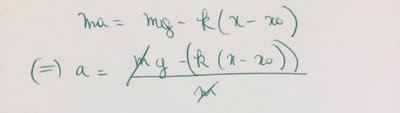 ma = mg - k(x - x₀)
(=) a = m̸g - (k(x - x₀)) / m̸